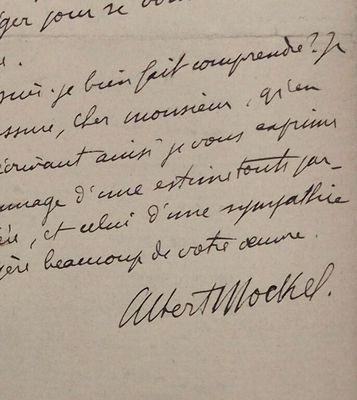 ger jour se vo
.
suis-je bien fait comprendre? Je
ssure, cher monsieur, qu'en
écrivant ainsi je vous exprime
d'une estime toute par-
, et celui d'une sympathie
beaucoup de votre œuvre.
Albert Mockel.